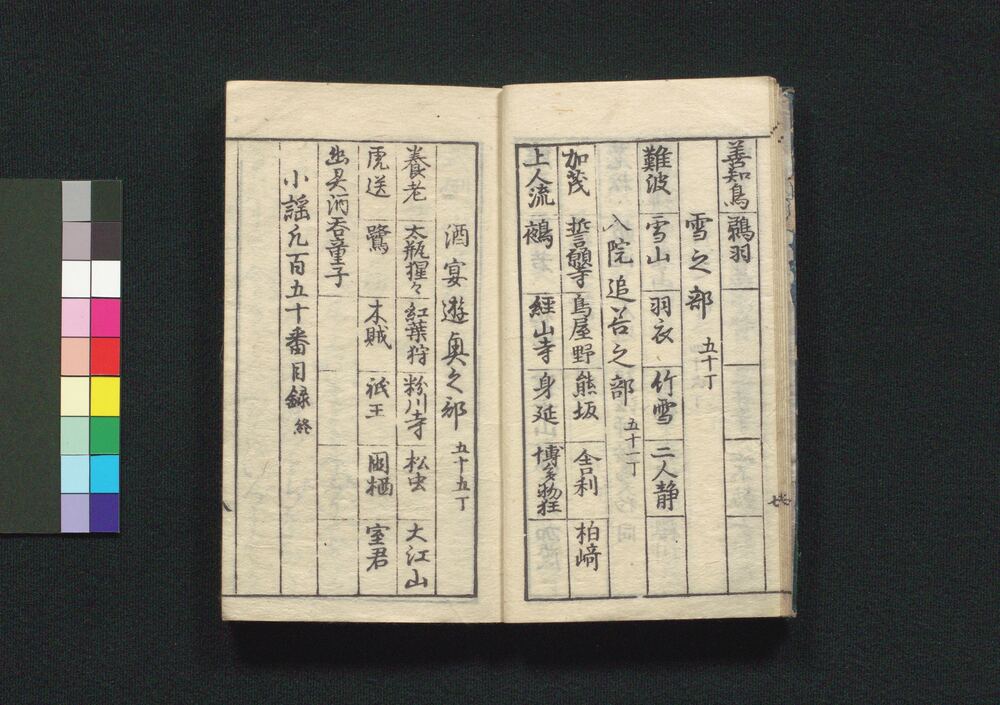 善知鳥 鵜羽
雪之部 五十丁
難波 雪山 羽衣 竹雪 二人静
入院追善之部 五十一丁
加茂 誓願寺 鳥屋野 熊坂 舎利 柏﨑
上人流 鵺 經山寺 身延 博多物狂
酒宴遊興之部 五十五丁
養老 大瓶猩々 紅葉狩 粉川寺 松虫 大江山
虎送 鷺 木賊 祇王 國栖 室君
酒呑童子
小謡凡百五十番目録 終